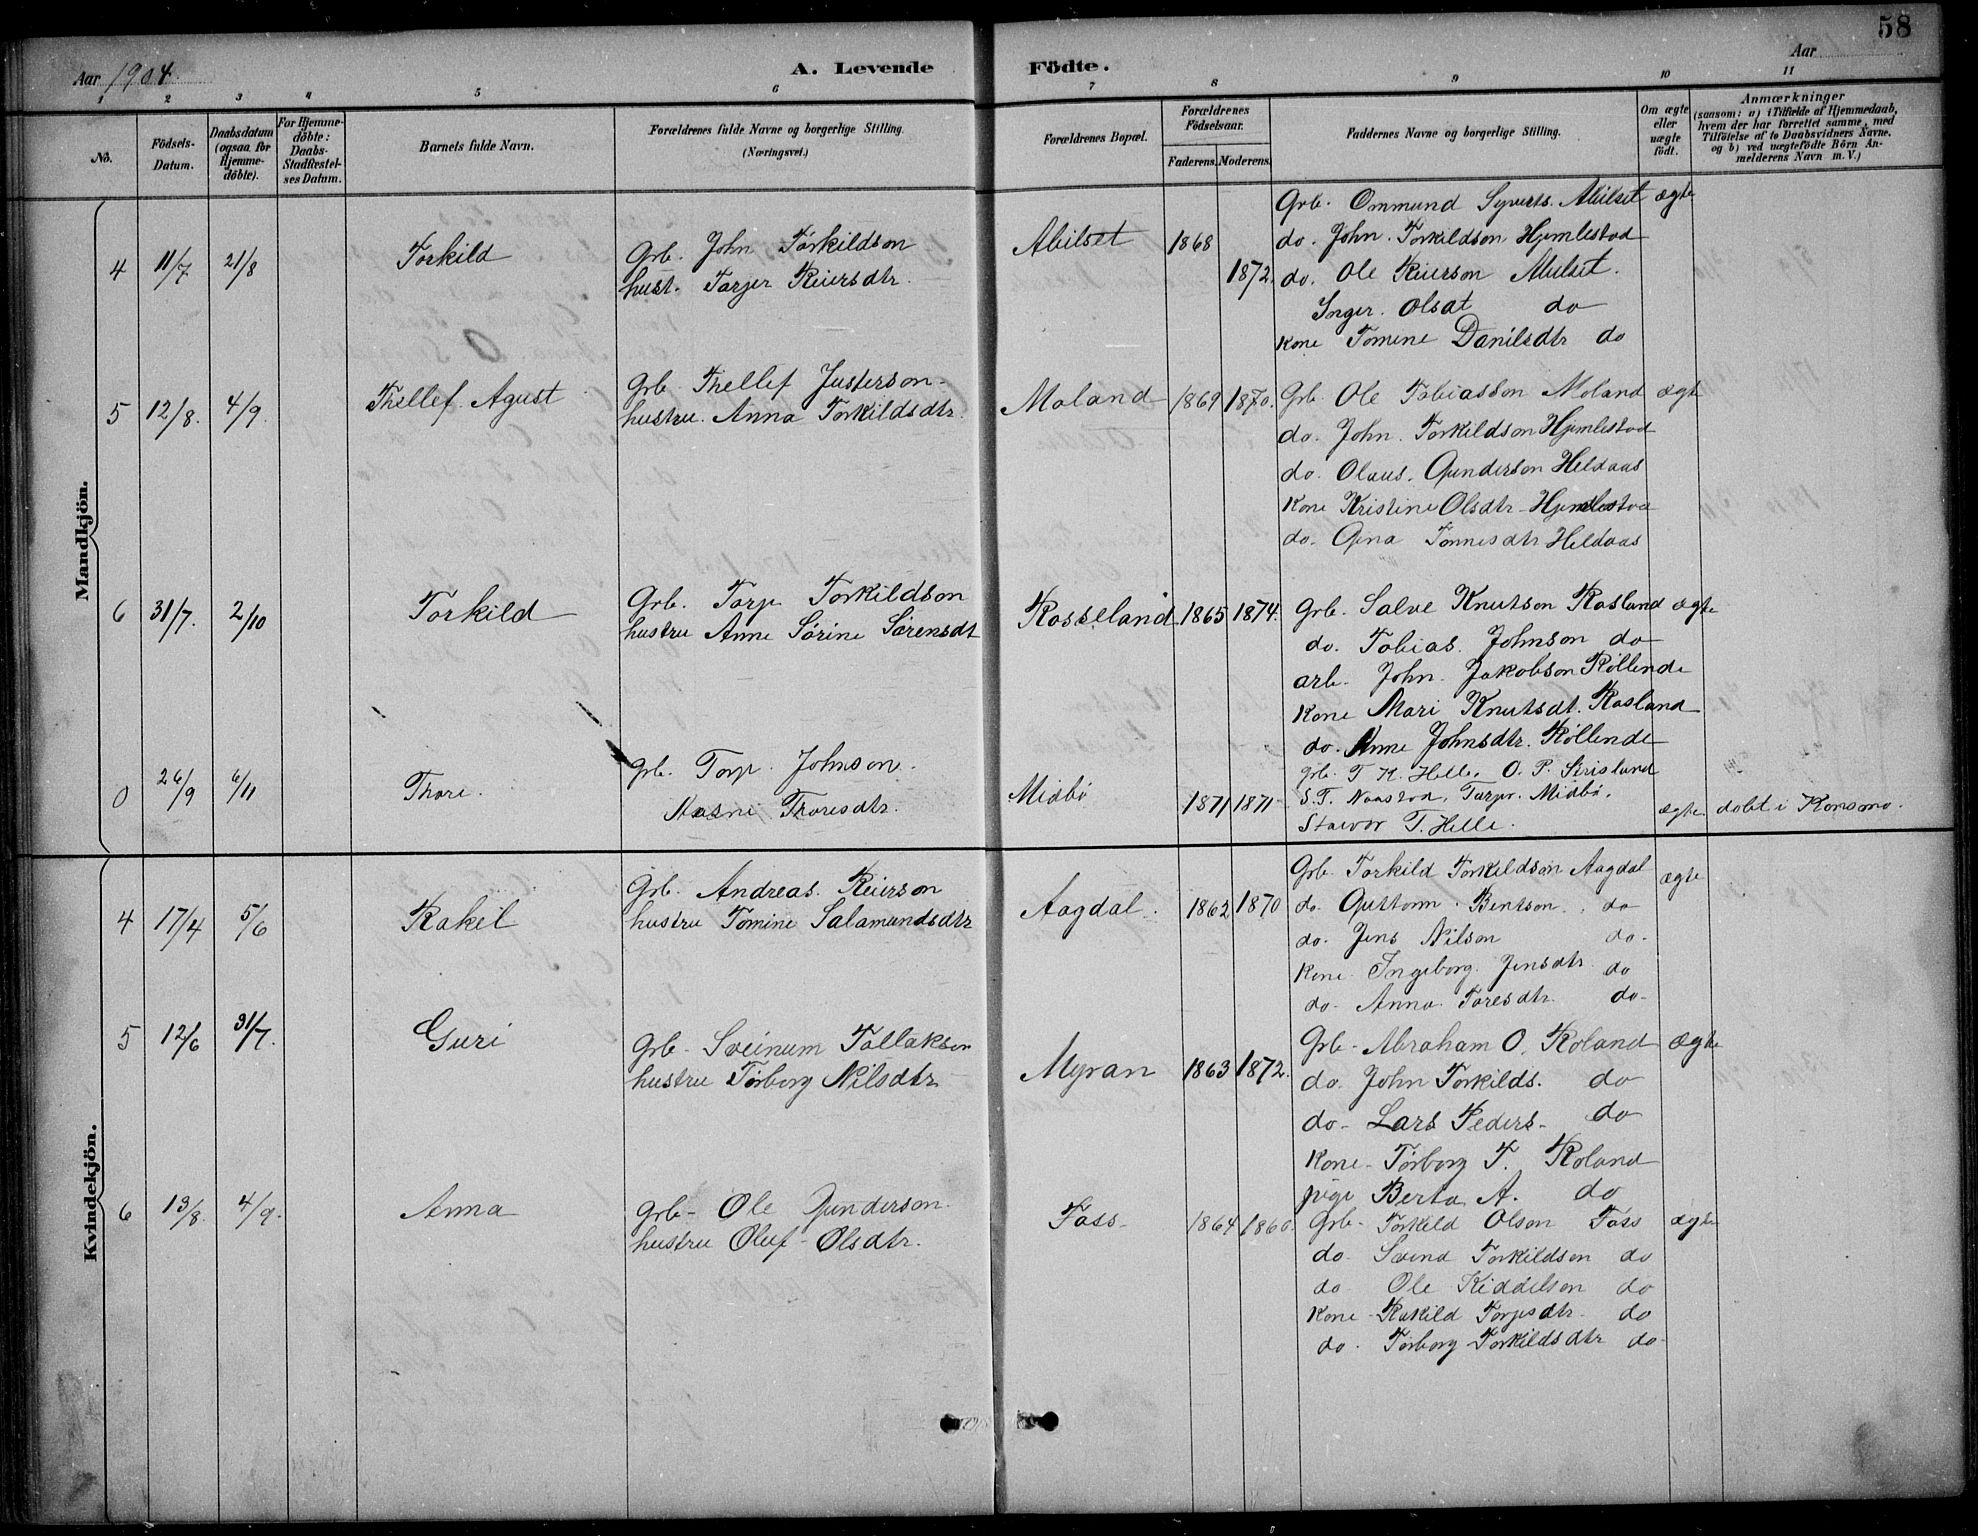 58
Aar 1904.
A. Levende Födte.
Aar
1 2 3 4 5 6 7 8 9 10 11
No.
Födsels-Datum.
Daabsdatum (ogsaa for Hjemme-döbte).
For Hjemme-döbte: Daabs-Stadfæstel-ses Datum.
Barnets fulde Navn.
Forældrenes fulde Navne og borgerlige Stilling.
(Næringsvei.)
Forældrenes Bopæl.
Forældrenes Födselsaar.
Faderens. Moderens.
Faddernes Navne og borgerlige Stilling.
Om ægte eller uægte födt.
Anmærkninger
(saasom: a) i Tilfælde af Hjemmedaab, hvem der har forrettet samme, med Tilföielse af to Daabsvidners Navne, og b) ved uægtefödte Börn An-melderens Navn m. V.)
Mandkjön.
4 11/7 21/8 Torkild
Grb. John Torkildson
hust. Tarjer Reiersdtr.
Abilset 1868 1872.
Grb. Ommund Syverts. Abilset ægte
do. John. Torkildson Hjemlestad
do. Ole Reierson Abilset.
Inger. Olsdt do
Kone Tomine Danilsdtr do
5 12/8. 4/9. Thellef Agust
Grb. Thellef Justerson
hustru. Anna Torkildsdtr.
Moland 1869 1870.
Grb. Ole Tobiasson Moland ægte
do. John. Torkildson Hjemlestad
do. Olaus. Gunderson Heldaas
Kone Kristine Olsdtr Hjemlestad
do. Gjna Tonnesdtr Heldaas
6 31/7. 2/10 Torkild
Grb. Tarje Torkildson
hustru Anne Sörine Sörensdt
Rosseland 1865 1874.
Grb. Salve Knutson Rosland ægte
do. Tobias. Johnson do
arb. John. Jakobson Röllende
Kone Mari Knutsdt. Rosland
do. Anne Johnsdtr. Röllende
0 26/9 6/11 Thore.
Grb. Torje. Johnson.
Aasne Thoresdtr.
Midbö 1871 1871
Grb. T. K. Helle. O. P. Strisland
S. T. Naastad, Tarje. Midbö.
T. Helle. ægte döbt i Konsmo.
Kvindekjön.
4 17/4 5/6 Rakel
Grb. Andreas. Reierson
hustru Tomine Salamundsdtr
Aagdal. 1862 1870
Grb Torkild Torkildson Aagdal ægte
do Guttorm. Bentson. do
do. Jens Nilson do.
Kone Ingeborg. Jensdtr. do
do. Anna Toresdtr do.
5 12/6 31/7. Guri
Grb. Sveinum Tallakson
hustru Torborg Nilsdtr
Myran 1863 1872.
Grb. Abraham O. Roland ægte
do. John Torkilds. do
do. Lars Peders. do
Kone Torborg T. Roland
pige Berta A. do
6 13/8. 4/9. Anna
Grb. Ole Gunderson.
hustru Oluf Olsdtr.
Foss 1864 1860.
Grb. Torkild Olson Foss ægte
do Svend Torkildson do
do Ole Kiddelson do
Kone Rakild Torjesdtr do
do. Torborg Torkildsdtr do